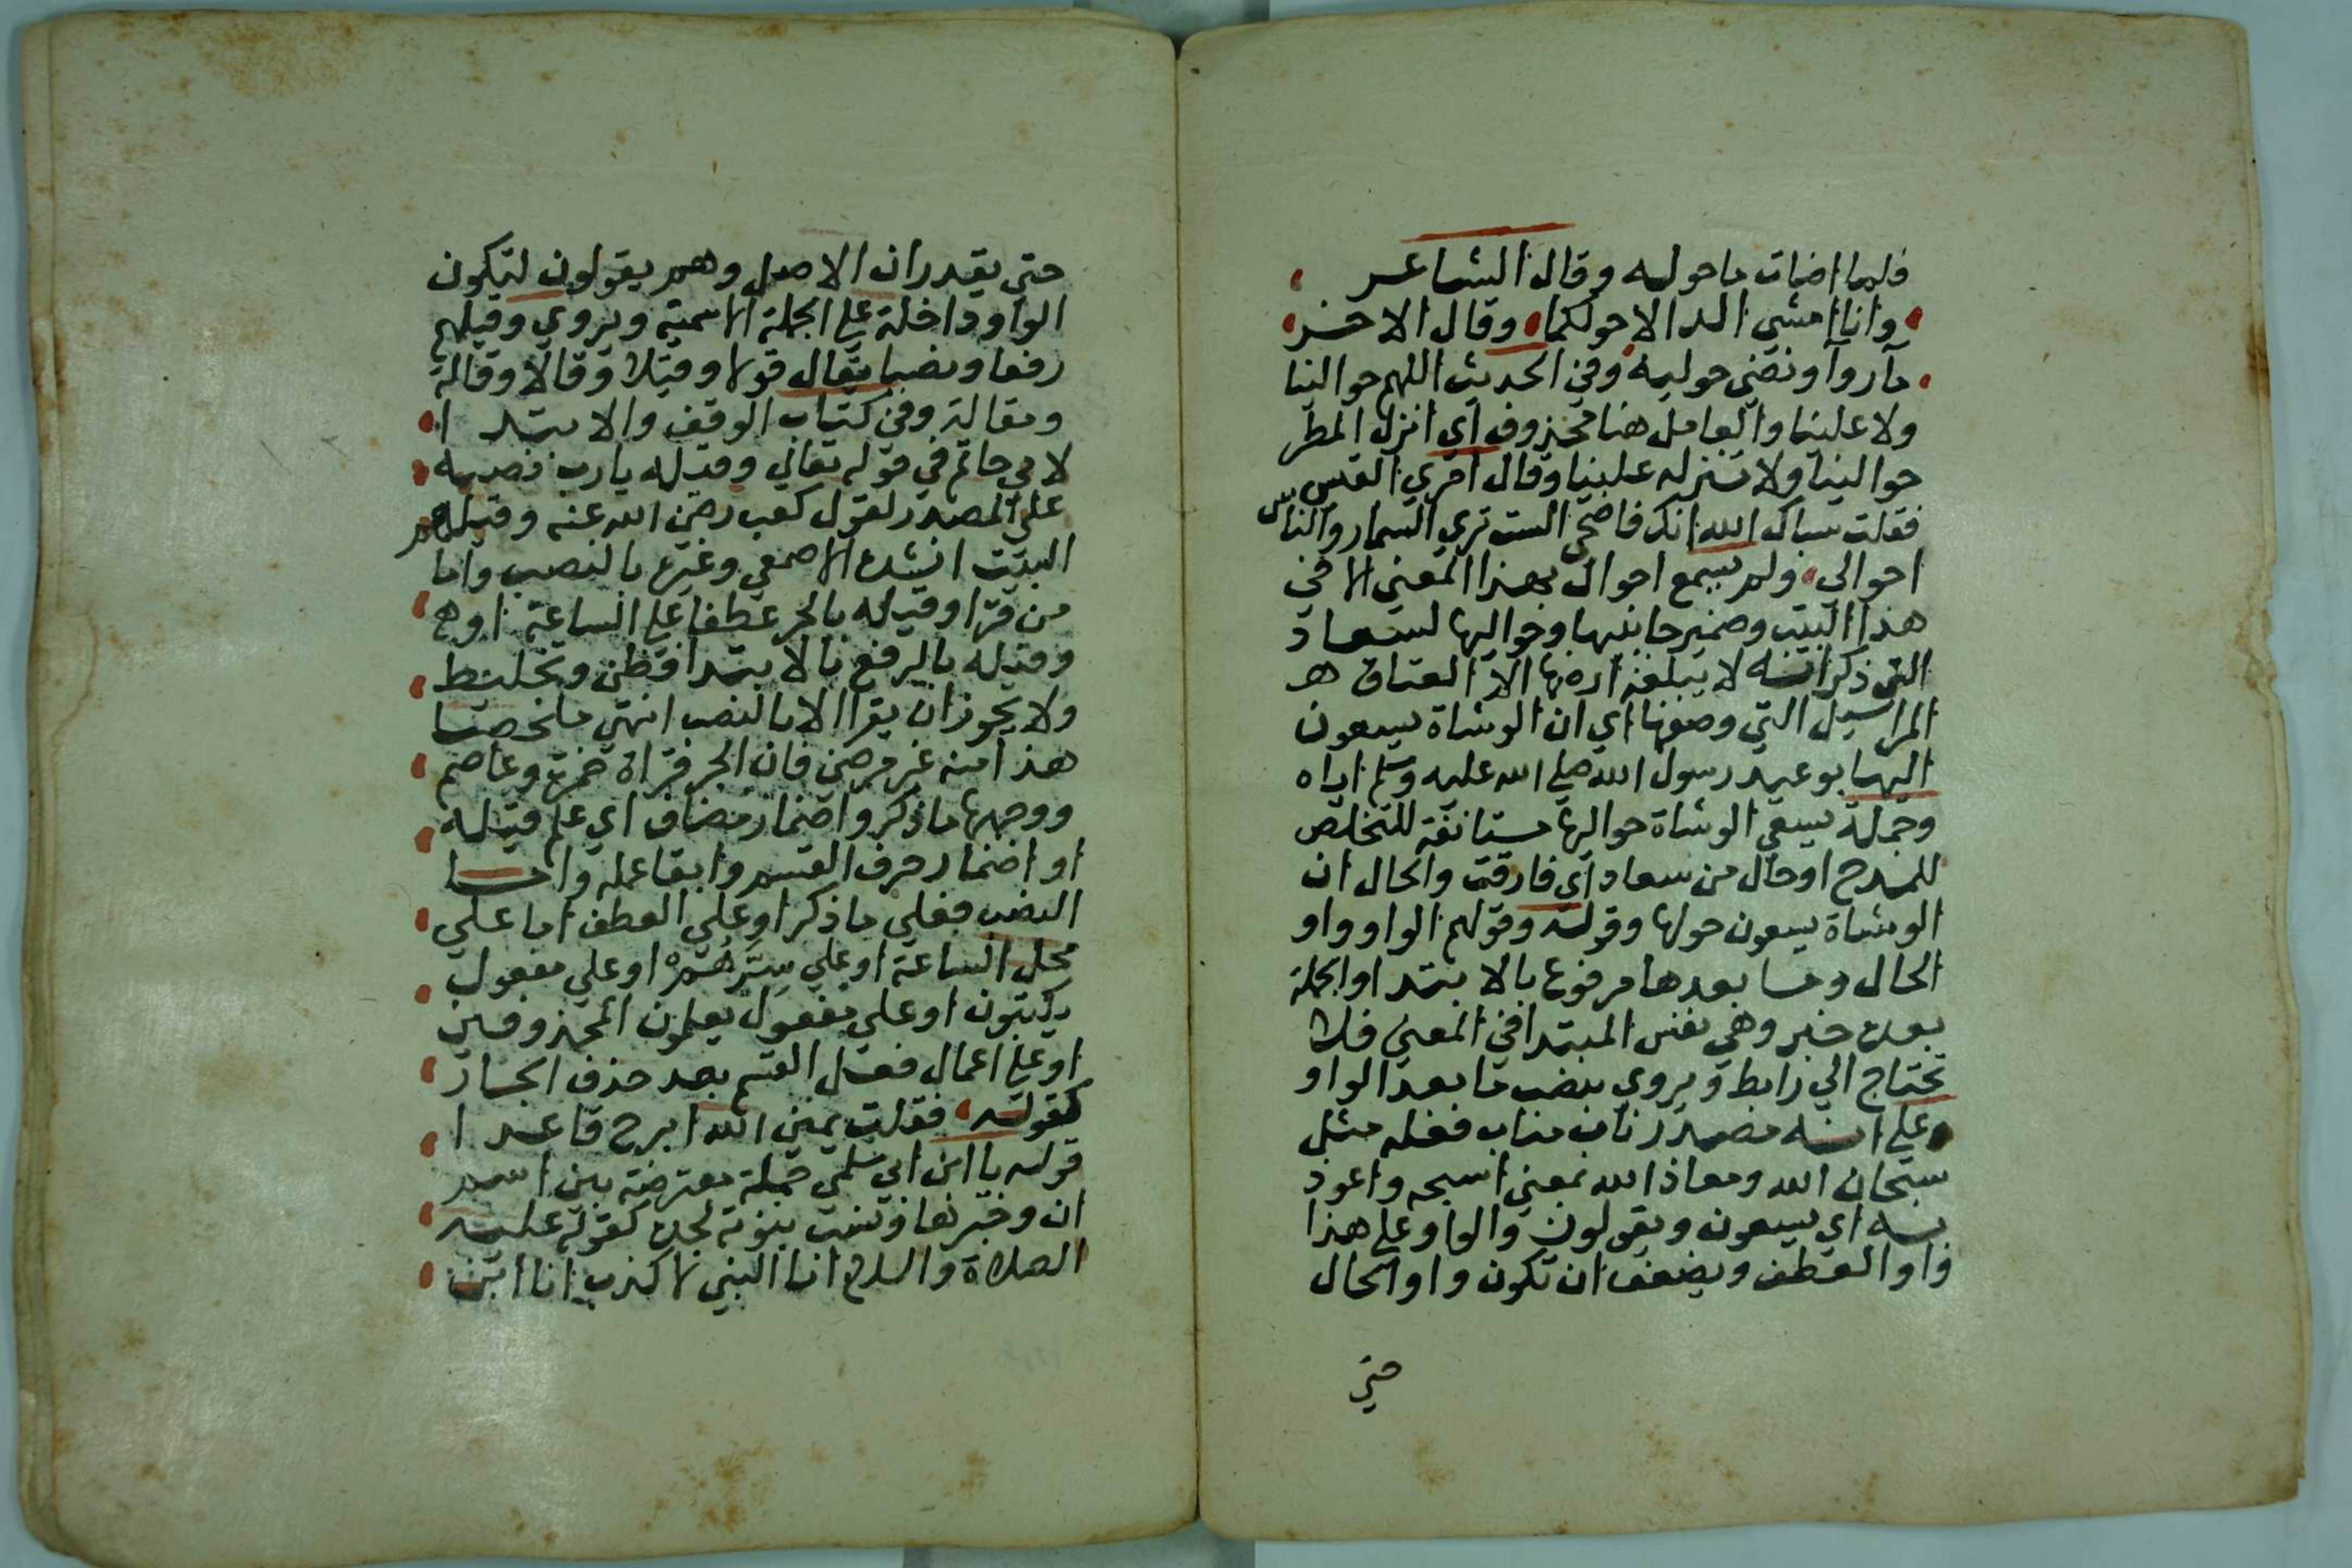 فلما اضات ما حوله وقال الشاعر
وانا امشي الدالا حولكما وقال الاخر
مآروآ ونصي حوليه وفي الحديث اللهم حوالينا
ولا علينا والعامل هنا محذوف اي انزل المطر
حوالينا ولا تنزله علينا وقال امري القيس
فقلت سباك الله انك فاضحي الست تري السمار والناس
احوالي ولم يسمع احوال بهذا المعني الا في
هذا البيت وضمير جانبيها وحواليها لسعاد
التي ذكر انه لا يبلغه ارضها الا العتاق
المراسيل التي وصفها اي ان الوشاة يسعون
اليها بوعيد رسول الله صلي الله عليه وسلم اياه
وجملة يسعي الوشاة حواليها مستانفة للتخلص
للمدح او حال من سعاد اي فارقت والحال ان
الوشاة يسعون حولها وقوله وقولهم الواو واو
الحال وما بعدها مرفوع بالابتدا والجملة
بعده خبر وهي نفس المبتدا في المعني فلا
تحتاج الي رابط ويروي بنصب ما بعد الواو
وعلي انه مصدر ناب مناب فعله مثل
سبحان الله ومعاذ الله بمعني اسبحه واعوذ
به اي يسعون ويقولون والواو علي هذا
واو العطف ويضعف ان تكون واو الحال
حتي
حتي يقدر ان الاصل وهم يقولون لتكون
الواو داخلة علي الجملة الاسمية ويروي وقيلهم
رفعا ونصبا يقال قولا وقيلا وقالا وقالة
ومقالة وفي كتاب الوقف والابتدا
لابي حاتم في قوله تعالي وقيله يارب نصبه
علي المصدر لقول كعب رضي الله عنه وقيلهم
البيت انشده الاصمعي وغيره بالنصب واما
من قرا وقيله بالجر عطفا علي الساعة او
وقيله بالرفع بالابتدا فظن وتخليط
ولا يجوز ان يقرا الا بالنصب انتهي ملخصا
هذا منه غير مرضي فان الجر قراة حمزة وعاصم
ووجهها ما ذكر واضمار مضاف اي علم قيله
او اضمار حرف القسم وابقا عمله واما
النصب فعلي ما ذكر او علي العطف اما علي
محل الساعة او علي سرهم او علي مفعول
يكتبون او علي مفعول يعلمون المحذوفين
او علي اعمال فعل القسم بعد حذف الجار
كقوله فقلت يمين الله ابرح قاعدا
قوله يا ابن ابي سلمي جملة معترضة بين اسم
ان وخبرها ونسب بنوته لجده كقوله عليه
الصلاة والسلام انا النبي لا كذب انا ابن